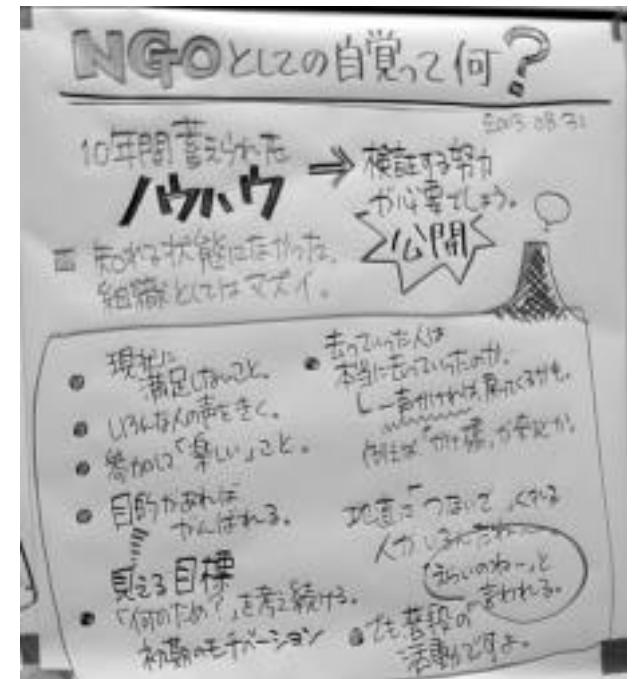 NGOとしての自覚って何?
2013.08.31
10年間蓄えられた
ノウハウ
⇒ 検証する努力
が必要でしょう。
公開
知れる状態になかった、
組織としてはマズイ。
● 現状に
満足しないこと。
● いろんな人の声をきく。
● 参加して「楽しい」こと。
● 目的があれば
がんばれる。
見える目標
● 「何のため?」を考え続ける。
初期のモチベーション
● 去っていった人は
本当に去っていったのか。
一声かければ、戻ってくるかも。
例えば「かけ橋」が
地道に「つないで」くれる
人がいるんだね
「えらいのねー」と
言われる。
● でも普段の
活動ですよ。